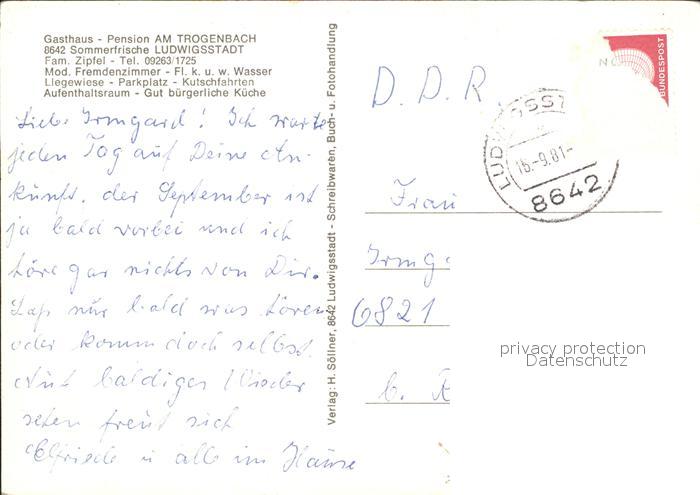 Gasthaus - Pension AM TROGENBACH
8642 Sommerfrische LUDWIGSSTADT
Fam. Zipfel - Tel. 09263/1725
Mod. Fremdenzimmer - Fl. k. u. w. Wasser
Liegewiese - Parkplatz - Kutschfahrten
Aufenthaltsraum - Gut bürgerliche Küche
Liebe Irmgard! Ich warte
jeden Tag auf Deine An-
kunft. der September ist
ja bald vorbei und ich
höre gar nichts von Dir.
Lass mir bald was hören
oder komm doch selbst.
Auf baldiges Wieder
sehen freut sich
Elfriede u alle im Hause
Verlag: H. Söllner, 8642 Ludwigsstadt - Schreibwaren, Buch- u. Fotohandlung
D. D. R.
BUNDESPOST
LUDWIGSST
-9.81-
8642
Frau
Irmg
6821
b. R
privacy protection
Datenschutz